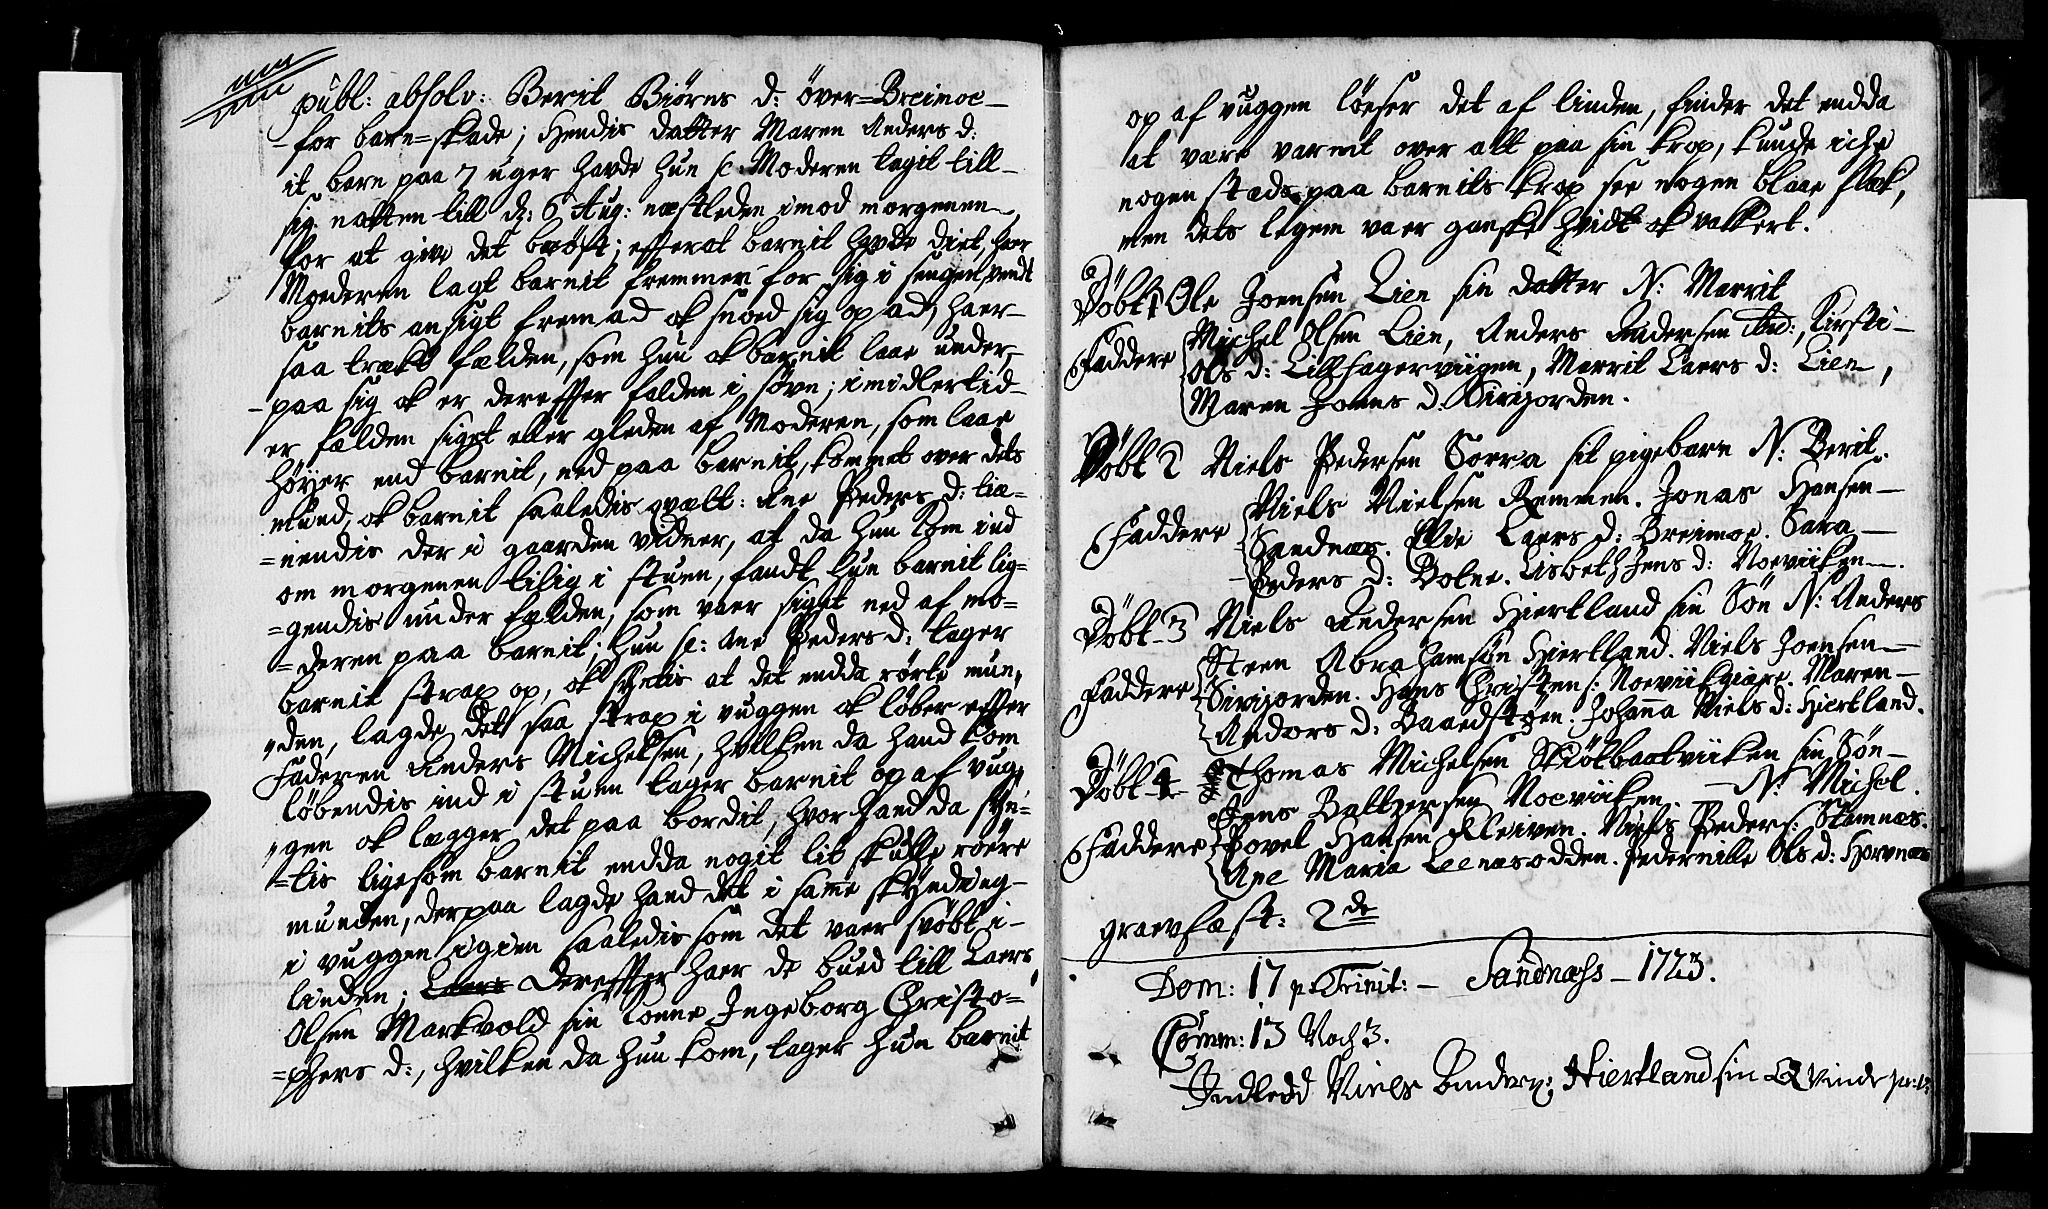 publ: absolv: Berit Biørns d: över=Breimoe
for barn=skade; Hendis datter Maren Anders d:
it barn paa 7 uger havde hun sc: Moderen tagit till
sig natten till d: 6 Aug: nestleden imod morgenen,
for at give det brøst; effterat barnit havde diet, haer
Moederen lagt barnit fremmer for sig i sengen, vendt
barnits ansigt fremad ok snoed sig opad, haer
saa trækt fælden, som hun ok barnit laae under,
paa sig ok er dereffter falden i søvn; imidlertid
er fælden siget eller gleden af Moderen, som laae
høyer end barnit, ned paa barnit, kommet over dets
mund, ok barnit saaledis qvalt: Ane Peders d: tie=
=nendis der i gaarden vidner, at da hun kom ind
om morgenen tilig i stuen, fandt hun barnit lig=
=gendis under fælden, som vaer siget ned af mo=
=deren paa barnit; hun sc: Ane Peders d: tager
barnit strax op, ok syntis at det endda rørte mun,
"den, lagde det saa strax i vuggen ok løber effter
Faderen Anders Michelsen, hvilken da hand kom
løbendis ind i stuen tager barnit op af vug,
"gen ok lægger det paa bordit, hvor hand da syn=
=tis ligesom barnit endda nogit lit skulle røere
munden, derpaa lagde hand det i same skynding
i vuggen igien saaledis som det vaer svøbt i
linden; Dereffter haer de bued till Laers
Olsen Markvold sin kone Ingeborg Christo=
=phers d:, hvilken da hun kom, tager hun barnit
op af vuggen løeser det af linden, finder det endda
at være varmt over alt paa sin krop, kunde iche
nogen stæds paa barnits krop see nogen blaae flæk,
men dets legem vaer ganske hvidt ok vakkert.
Döbt 1 Ole Joensen Lien sin datter N: Marrit
Faddere Michel Olsen Lien, Anders Andersen ibid:, Kirsti
Ols d: Lillhagerviigen, Marrit Laers d: Lien,
Maren Joens d: Sirijorden.
Döbt 2 Niels Pedersen Sorra sit pigebarn N: Berit.
Faddere Niels Nielsen Remmen. Jonas Hansen
Sandnæs. Elie Laers d: Breimoe. Sara
Peders d: Bolne. Lisbeth Jens d: Noeviiken.
Döbt 3 Niels Andersen Hiertland sin Sön N: Anders
Faddere Steen Abrahamsøn Hiertland. Niels Joensen
Sirijorden. Hans Christens: Noeviikgiære. Maren
Anders d: Baaedstøen. Johanna Niels d: Hiertland.
Döbt 4 Thomas Michelsen Skiøtbaatviiken sin Sön
Jens Baltzersen Noeviiken. N: Michel.
Faddere Povel Hansen Kleiven. Niels Peders: Stamnæs.
Ane Maria Leenæsodden. Pedernille Ols d: Hornnæs
graevfæst: 2de
Dom: 17 p. Trinit: Sandnæss 1723.
Comm: 13 Noch 3.
Indledd Niels Anders: Hiertland sin Qvinde